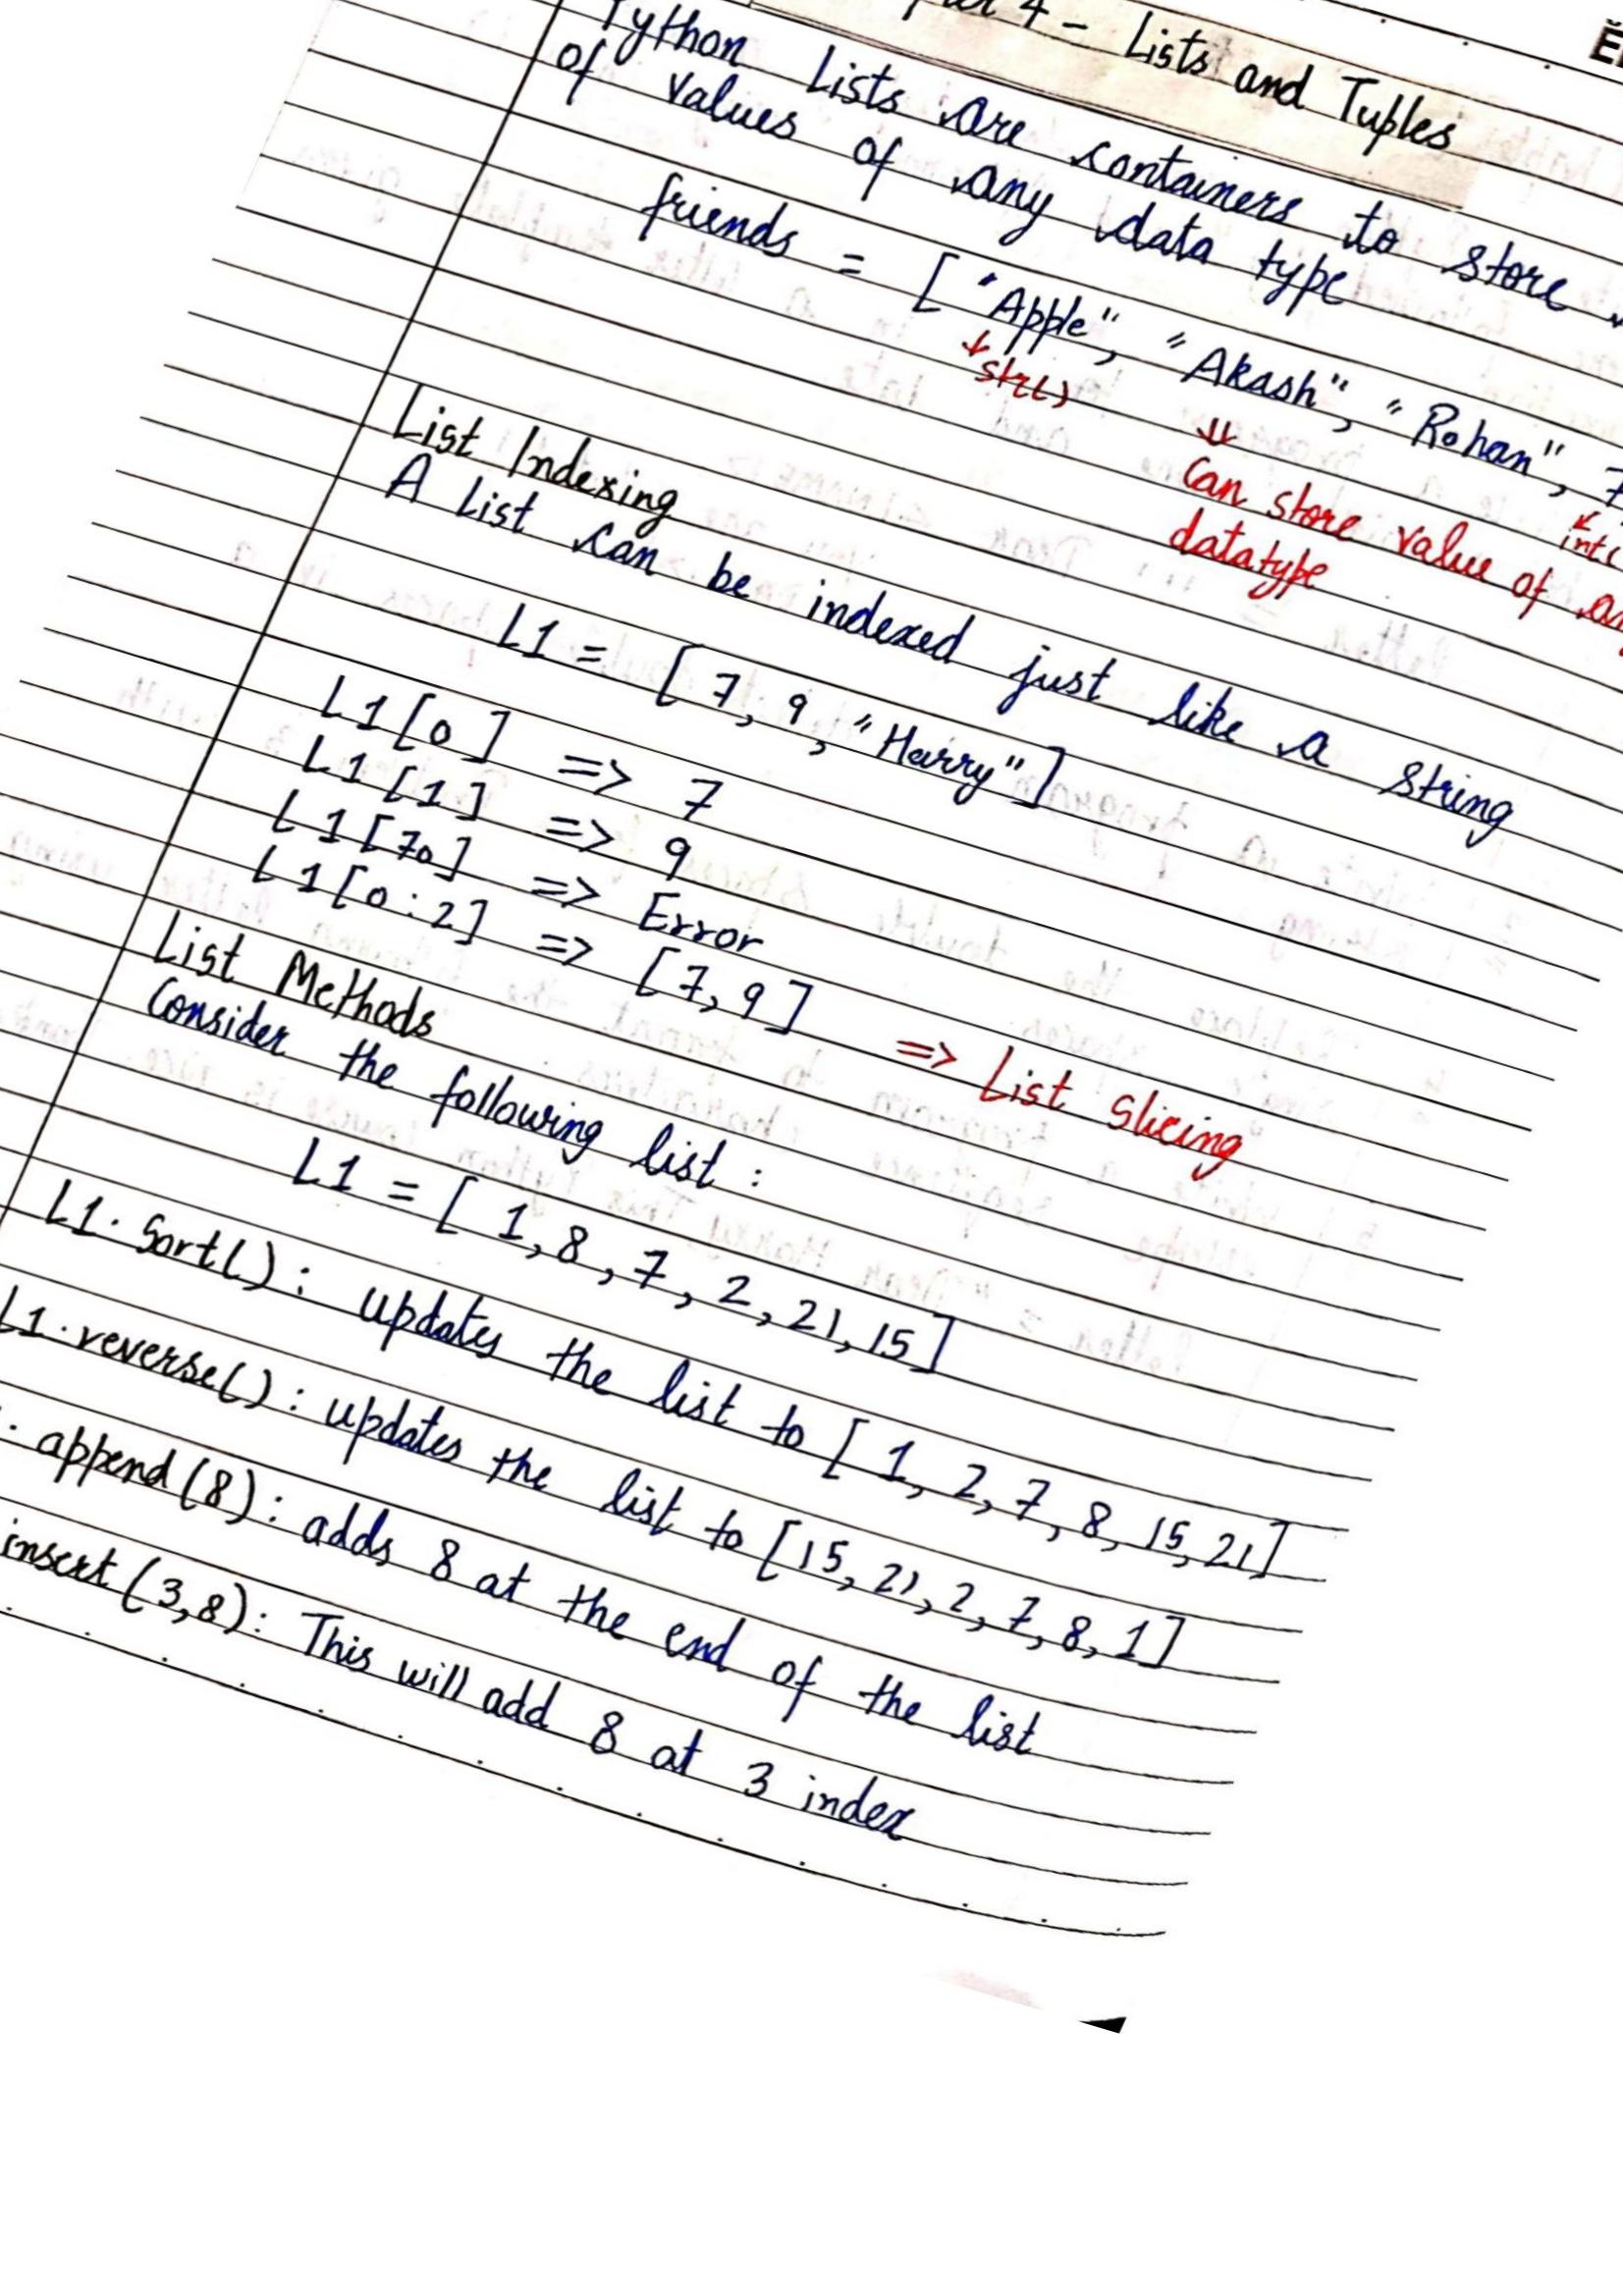 4 - Lists and Tuples
Python Lists are containers to store
of values of any data type
friends = ["Apple", "Akash", "Rohan", 7
str()
int(
Can store value of
datatype
List Indexing
A List can be indexed just like a string
L1 = [7, 9, "Harry"]
L1[0] => 7
L1[1] => 9
L1[70] => Error
L1[0:2] => [7, 9] => List Slicing
List Methods
Consider the following list :
L1 = [1, 8, 7, 2, 21, 15]
L1.Sort() : updates the list to [1, 2, 7, 8, 15, 21]
L1.reverse() : updates the list to [15, 21, 2, 7, 8, 1]
. append(8) : adds 8 at the end of the list
insert(3,8) : This will add 8 at 3 index